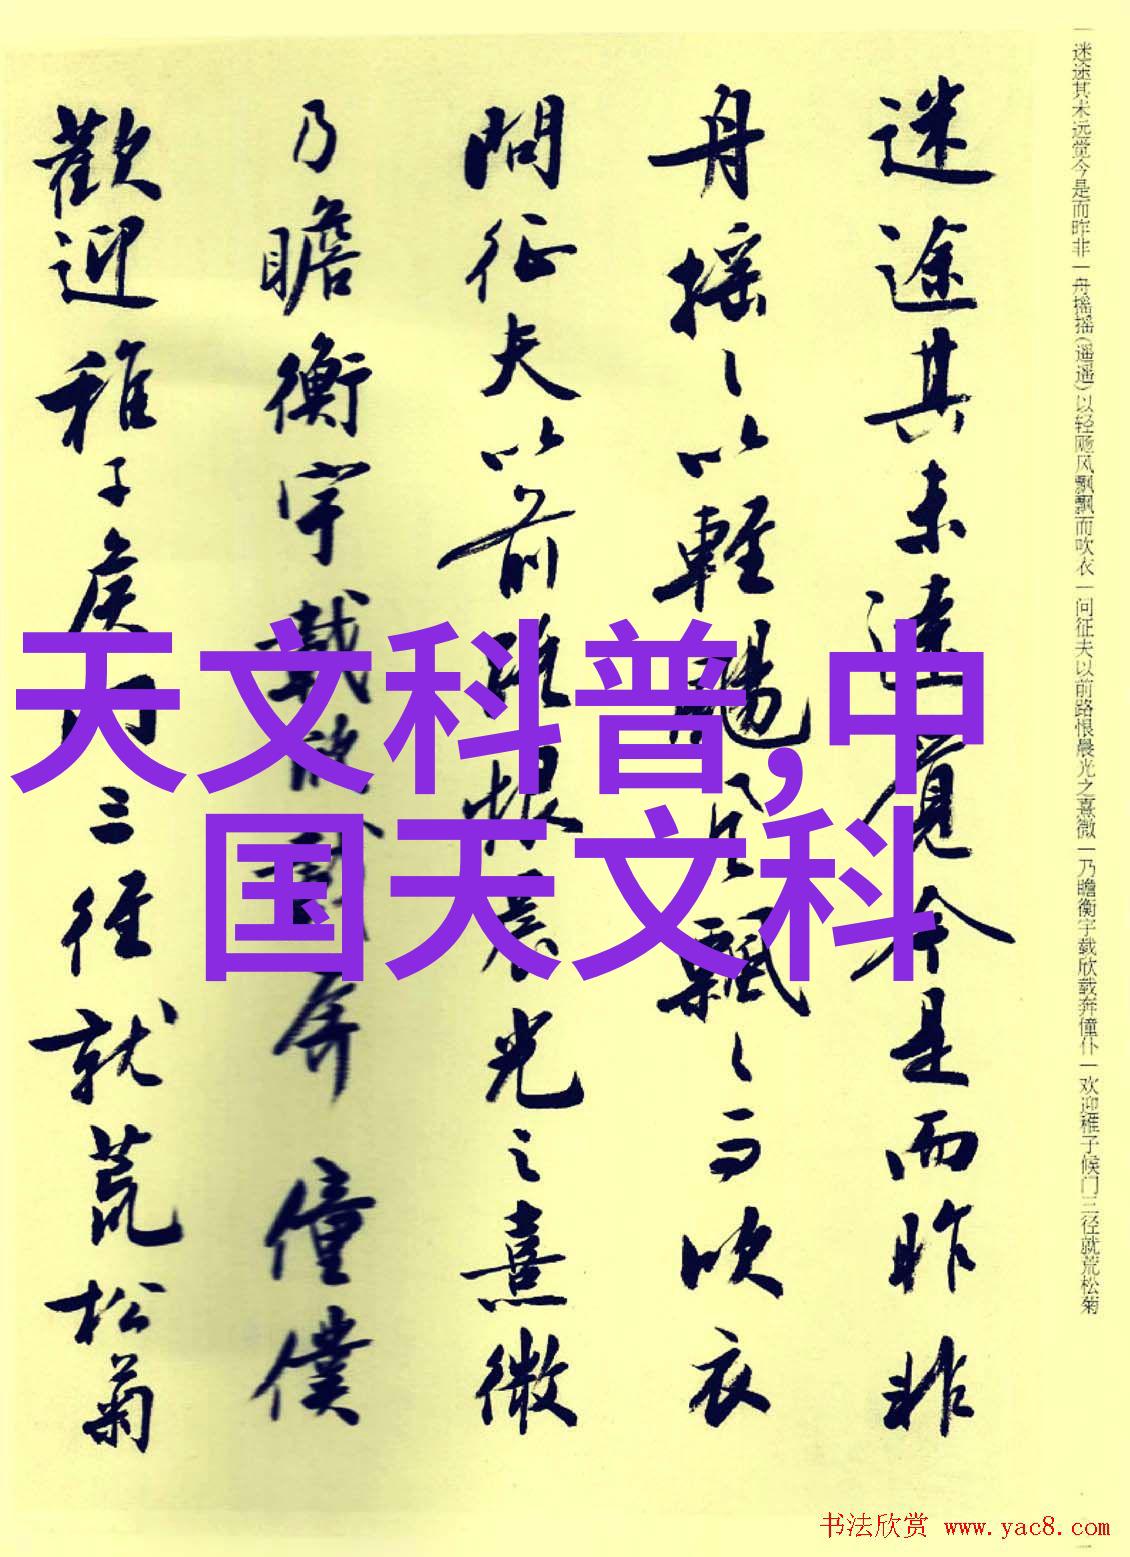 迷途其未远觉今是而昨非一舟摇摇(遥遥)以轻飏风飘飘而吹衣一问征夫以前路恨晨光之熹微一乃瞻衡宇载欣载奔僮仆一欢迎稚子候门三径就荒松菊
迷途其未遠覺今是而昨非
舟摇〻以輕颺風飄〻而吹衣
問征夫以前路恨晨光之熹微
乃瞻衡宇載欣載奔僮僕
歡迎稚子候門三徑就荒松菊
天文科普,中
国天文科
书法欣赏 www.yac8.com